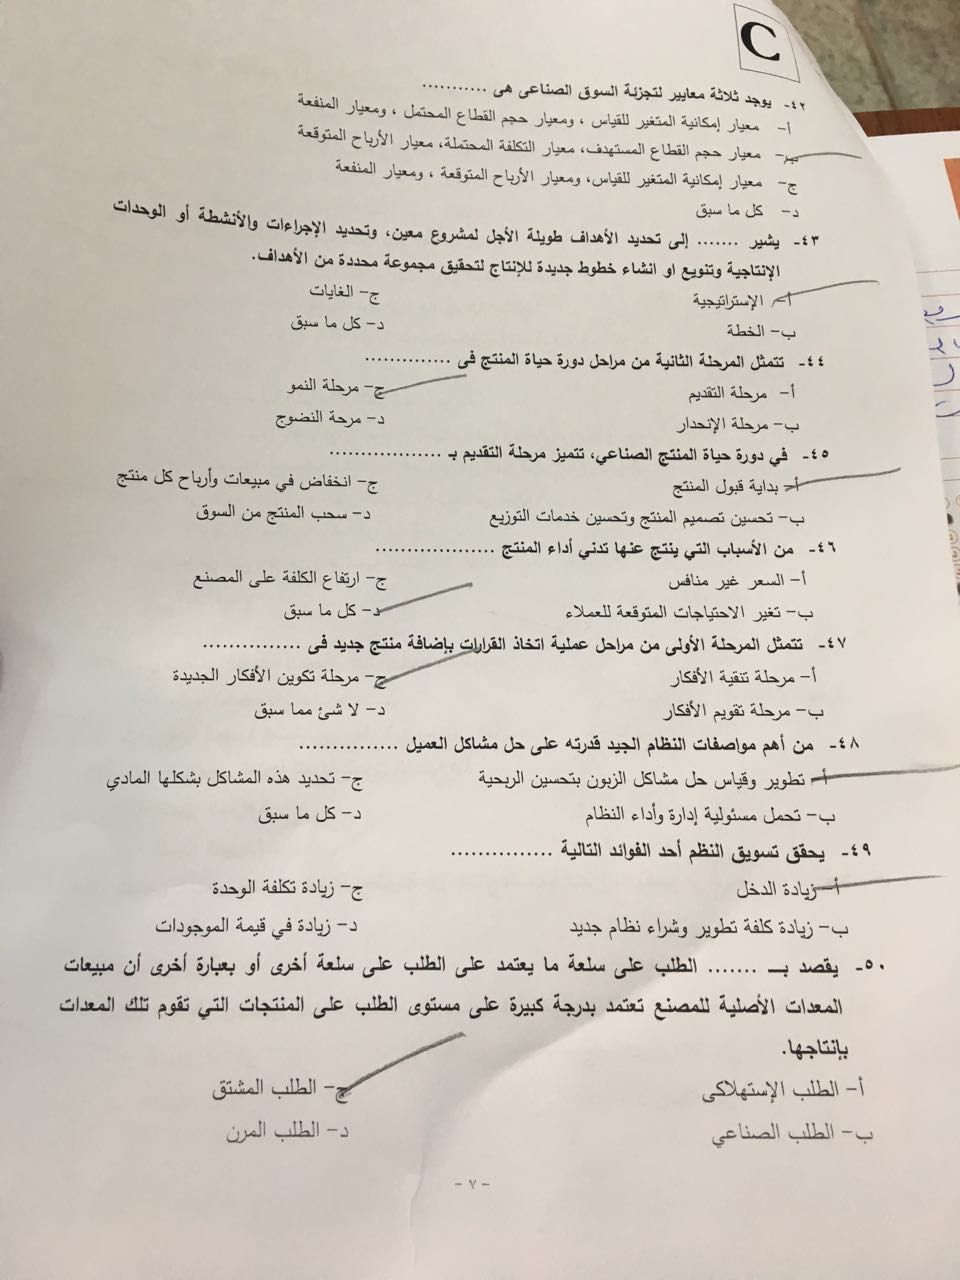 C
٤٢- يوجد ثلاثة معايير لتجزئة السوق الصناعى هى ...........
أ- معيار إمكانية المتغير للقياس ، ومعيار حجم القطاع المحتمل ، ومعيار المنفعة
ب- معيار حجم القطاع المستهدف، معيار التكلفة المحتملة، معيار الأرباح المتوقعة
ج- معيار إمكانية المتغير للقياس، ومعيار الأرباح المتوقعة ، ومعيار المنفعة
د- كل ما سبق
٤٣- يشير ....... إلى تحديد الأهداف طويلة الأجل لمشروع معين، وتحديد الإجراءات والأنشطة أو الوحدات
الإنتاجية وتنويع او انشاء خطوط جديدة للإنتاج لتحقيق مجموعة محددة من الأهداف.
أ- الإستراتيجية ج- الغايات
ب- الخطة د- كل ما سبق
٤٤- تتمثل المرحلة الثانية من مراحل دورة حياة المنتج فى ..............
أ- مرحلة التقديم ج- مرحلة النمو
ب- مرحلة الإنحدار د- مرحة النضوج
٤٥- في دورة حياة المنتج الصناعي، تتميز مرحلة التقديم بـ .................
أ- بداية قبول المنتج ج- انخفاض في مبيعات وأرباح كل منتج
ب- تحسين تصميم المنتج وتحسين خدمات التوزيع د- سحب المنتج من السوق
٤٦- من الأسباب التي ينتج عنها تدني أداء المنتج ..................
أ- السعر غير منافس ج- ارتفاع الكلفة على المصنع
ب- تغير الاحتياجات المتوقعة للعملاء د- كل ما سبق
٤٧- تتمثل المرحلة الأولى من مراحل عملية اتخاذ القرارات بإضافة منتج جديد فى ...............
أ- مرحلة تنقية الأفكار ج- مرحلة تكوين الأفكار الجديدة
ب- مرحلة تقويم الأفكار د- لا شئ مما سبق
٤٨- من أهم مواصفات النظام الجيد قدرته على حل مشاكل العميل ...............
أ- تطوير وقياس حل مشاكل الزبون بتحسين الربحية ج- تحديد هذه المشاكل بشكلها المادي
ب- تحمل مسئولية إدارة وأداء النظام د- كل ما سبق
٤٩- يحقق تسويق النظم أحد الفوائد التالية ...............
أ- زيادة الدخل ج- زيادة تكلفة الوحدة
ب- زيادة كلفة تطوير وشراء نظام جديد د- زيادة في قيمة الموجودات
٥٠- يقصد بـ ....... الطلب على سلعة ما يعتمد على الطلب على سلعة أخرى أو بعبارة أخرى أن مبيعات
المعدات الأصلية للمصنع تعتمد بدرجة كبيرة على مستوى الطلب على المنتجات التي تقوم تلك المعدات
بإنتاجها.
أ- الطلب الإستهلاكى ج- الطلب المشتق
ب- الطلب الصناعي د- الطلب المرن
- ٧ -